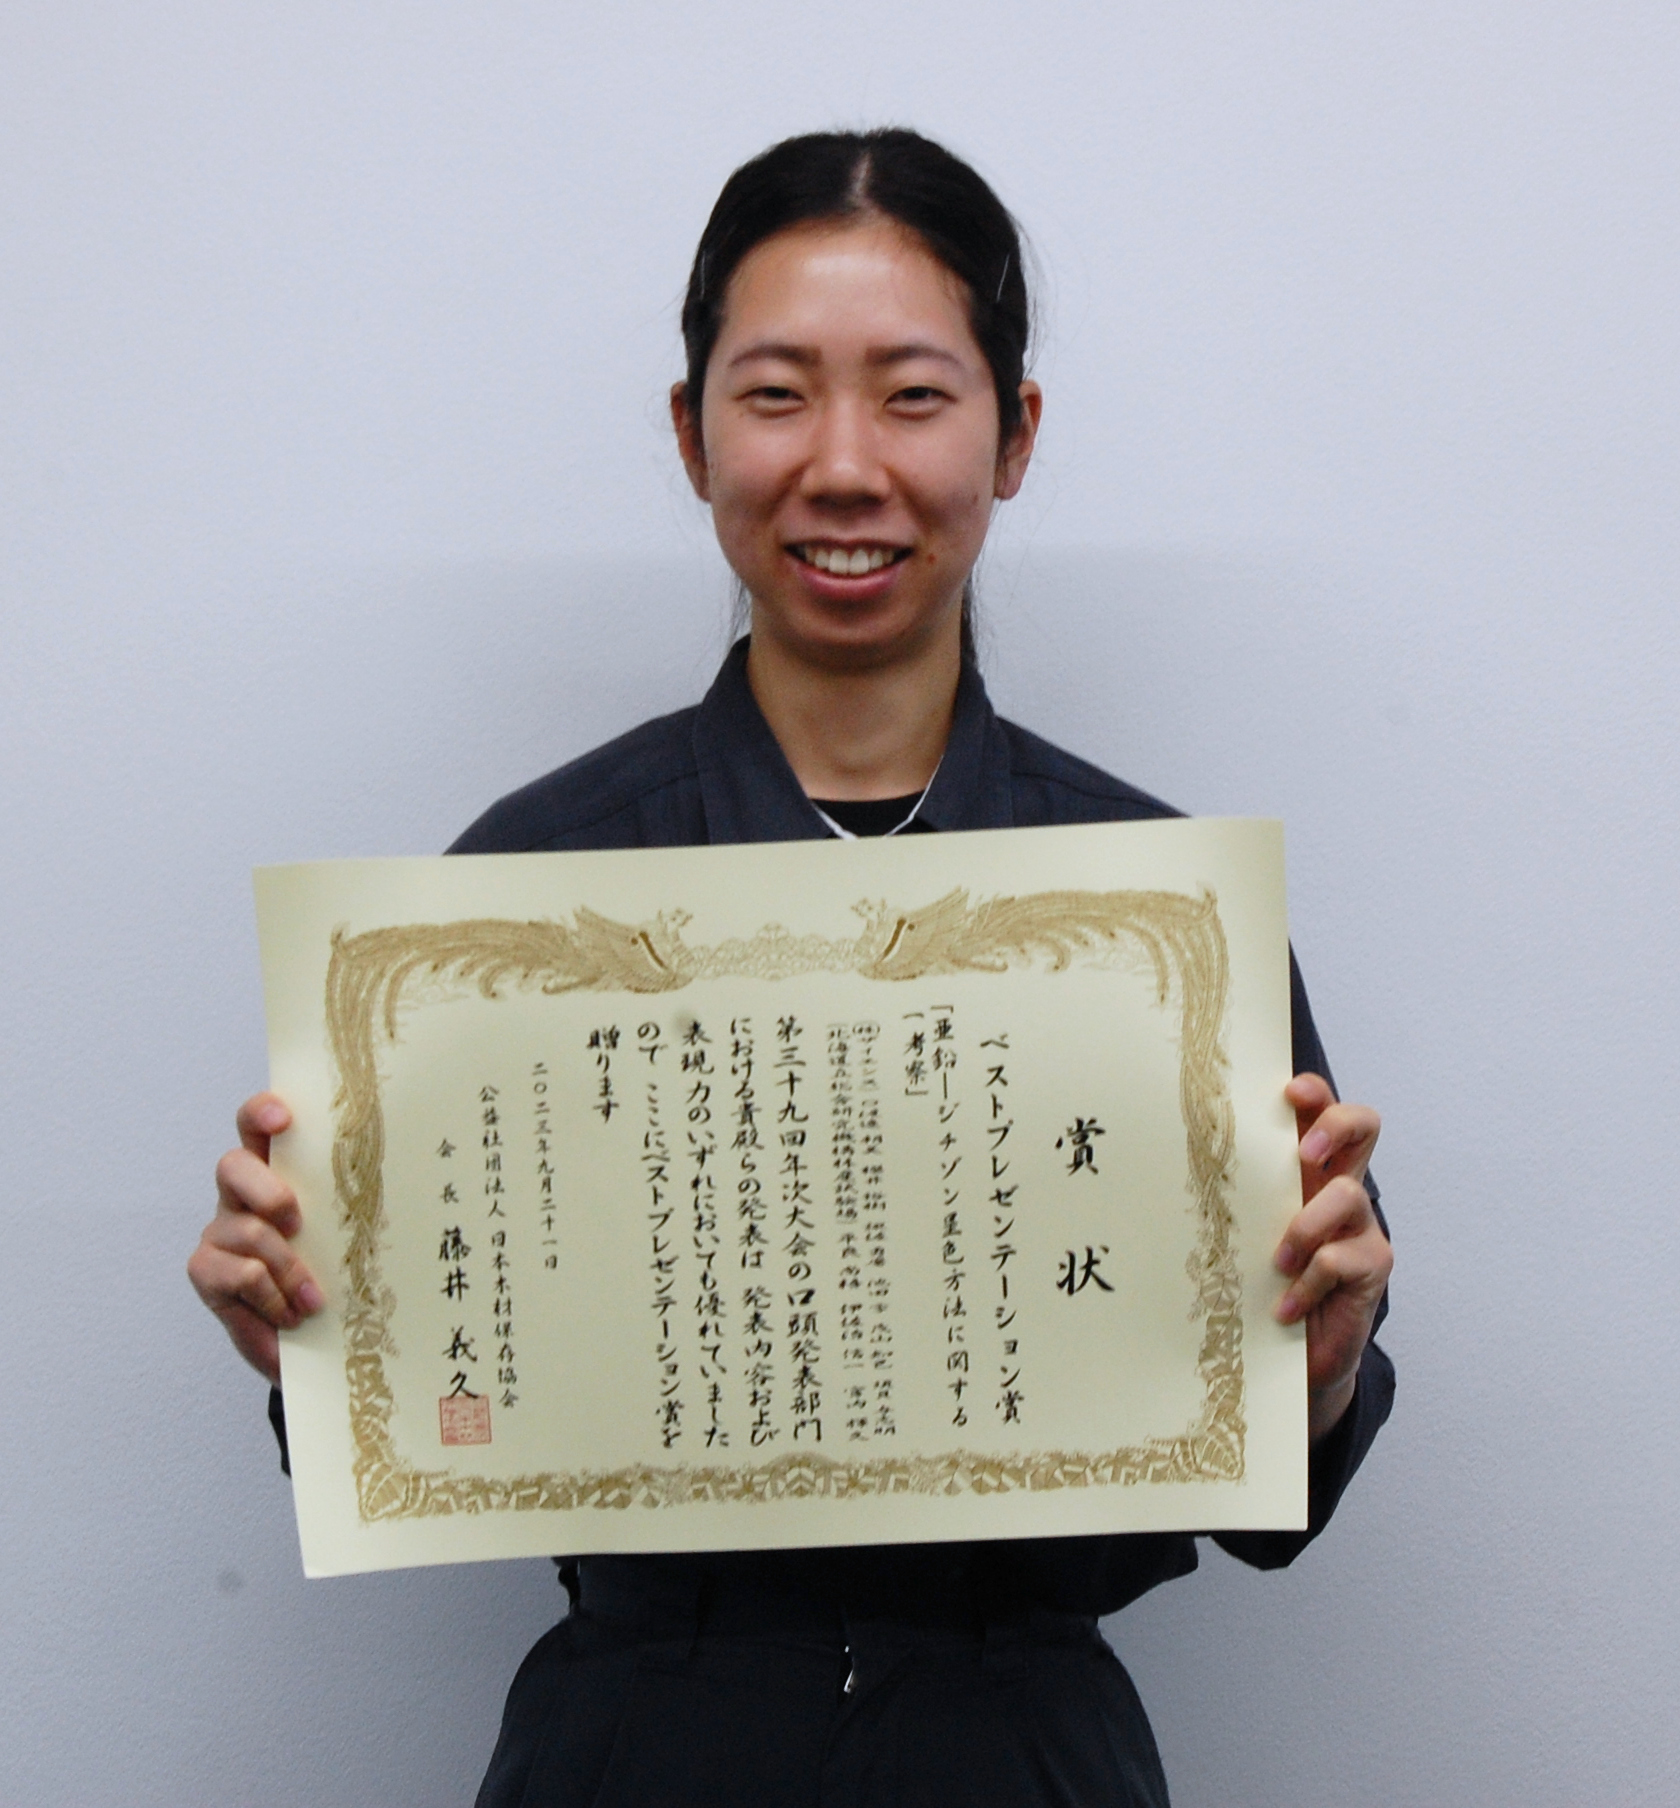 賞状
ベストプレゼンテーション賞
「亜鉛―ジチゾン呈色方法に関する
一考察」
(株)ザイエンス)
(北海道立総合研究機構林産試験場)
第三十九回年次大会の口頭発表部門
における貴殿らの発表は 発表内容および
表現力のいずれにおいても優れていました
ので ここにベストプレゼンテーション賞を
贈ります
二〇二三年九月二十一日
公益社団法人 日本木材保存協会
会長 藤井 義久